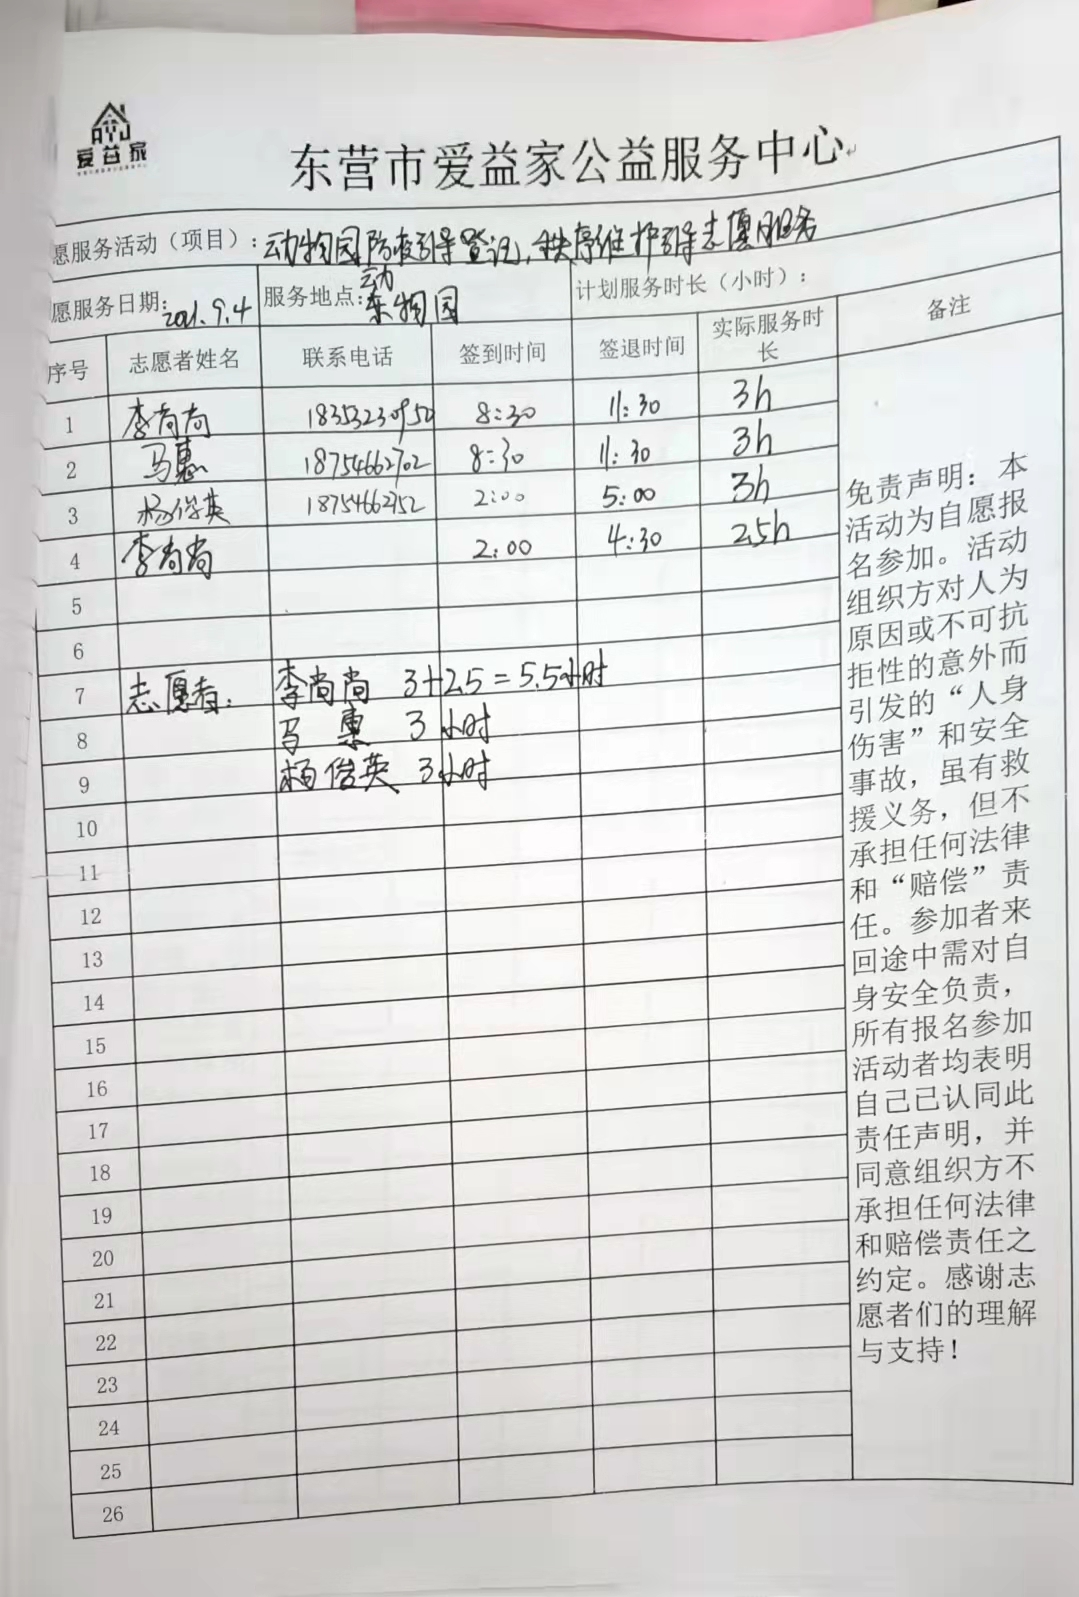 爱益家
东营市爱益家公益服务中心
愿服务活动（项目）：动物园防疫引导登记，秩序维护引导志愿服务
愿服务日期：2021.9.4 服务地点：动物园 计划服务时长（小时）：
序号 志愿者姓名 联系电话 签到时间 签退时间 实际服务时长 备注
1 李尚尚 8:30 11:30 3h
2 马惠 18754662702 8:30 11:30 3h
3 杨俊英 18754662152 2:00 5:00 3h
4 李尚尚 2:00 4:30 2.5h
5
6
7 志愿者： 李尚尚 3+2.5=5.5小时
8 马惠 3小时
9 杨俊英 3小时
10
11
12
13
14
15
16
17
18
19
20
21
22
23
24
25
26
免责声明：本
活动为自愿报
名参加。活动
组织方对人为
原因或不可抗
拒性的意外而
引发的“人身
伤害”和安全
事故，虽有救
援义务，但不
承担任何法律
和“赔偿”责
任。参加者来
回途中需对自
身安全负责，
所有报名参加
活动者均表明
自己已认同此
责任声明，并
同意组织方不
承担任何法律
和赔偿责任之
约定。感谢志
愿者们的理解
与支持！